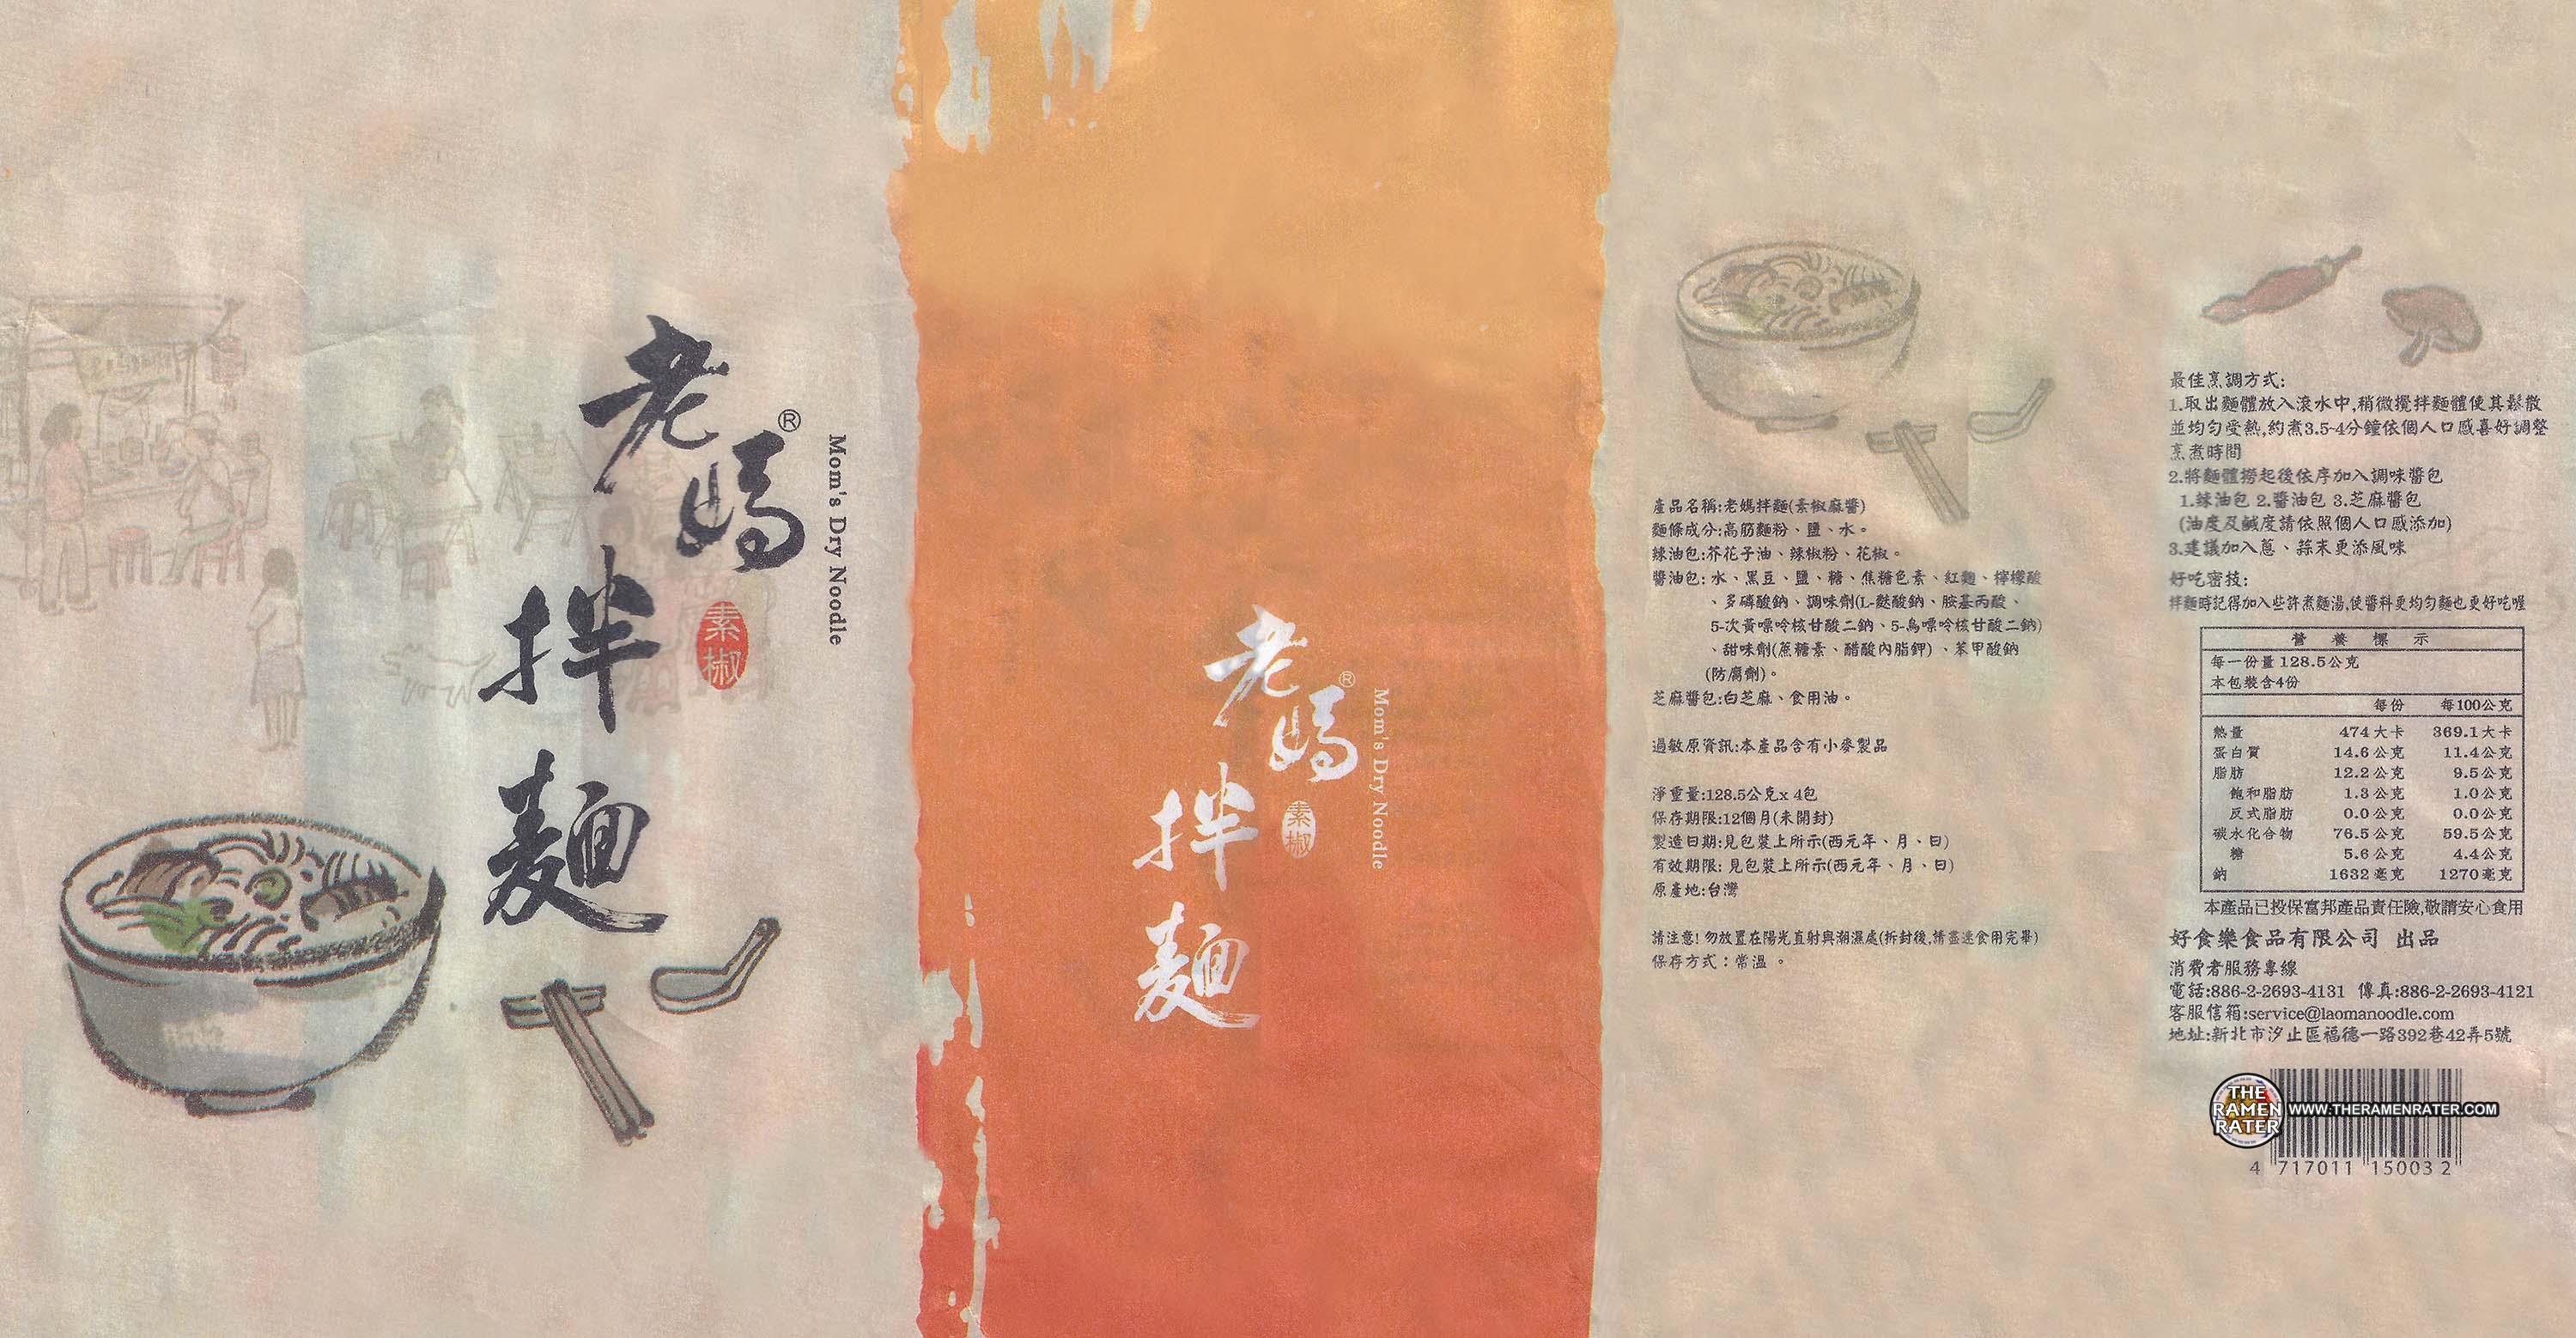 老媽拌麵
®
素椒
Mom's Dry Noodle
老媽拌麵
®
素椒
Mom's Dry Noodle
產品名稱:老媽拌麵(素椒麻醬)
麵條成分:高筋麵粉、鹽、水。
辣油包:芥花子油、辣椒粉、花椒。
醬油包: 水、黑豆、鹽、糖、焦糖色素、紅麴、檸檬酸
、多磷酸鈉、調味劑(L-麩酸鈉、胺基丙酸、
5-次黃嘌呤核苷酸二鈉、5-鳥嘌呤核苷酸二鈉)
、甜味劑(蔗糖素、醋酸內脂鉀)、苯甲酸鈉
(防腐劑)。
芝麻醬包:白芝麻、食用油。
過敏原資訊:本產品含有小麥製品
淨重量:128.5公克x 4包
保存期限:12個月(未開封)
製造日期:見包裝上所示(西元年、月、日)
有效期限: 見包裝上所示(西元年、月、日)
原產地:台灣
請注意! 勿放置在陽光直射與潮濕處(拆封後,請盡速食用完畢)
保存方式：常溫 。
最佳烹調方式:
1.取出麵體放入滾水中,稍微攪拌麵體使其鬆散
並均勻受熱,約煮3.5-4分鐘依個人口感喜好調整
烹煮時間
2.將麵體撈起後依序加入調味醬包
1.辣油包 2.醬油包 3.芝麻醬包
(油度及鹹度請依照個人口感添加)
3.建議加入蔥、蒜末更添風味
好吃密技:
拌麵時記得加入些許煮麵湯,使醬料更均勻麵也更好吃喔
營 養 標 示
每一份量 128.5公克
本包裝含4份
每份 每100公克
熱量 474大卡 369.1大卡
蛋白質 14.6公克 11.4公克
脂肪 12.2公克 9.5公克
飽和脂肪 1.3公克 1.0公克
反式脂肪 0.0公克 0.0公克
碳水化合物 76.5公克 59.5公克
糖 5.6公克 4.4公克
鈉 1632毫克 1270毫克
本產品已投保富邦產品責任險,敬請安心食用
好食樂食品有限公司 出品
消費者服務專線
電話:886-2-2693-4131 傳真:886-2-2693-4121
客服信箱:service@laomanoodle.com
地址:新北市汐止區福德一路392巷42弄5號
THE RAMEN RATER
WWW.THERAMENRATER.COM
4 717011 15003 2